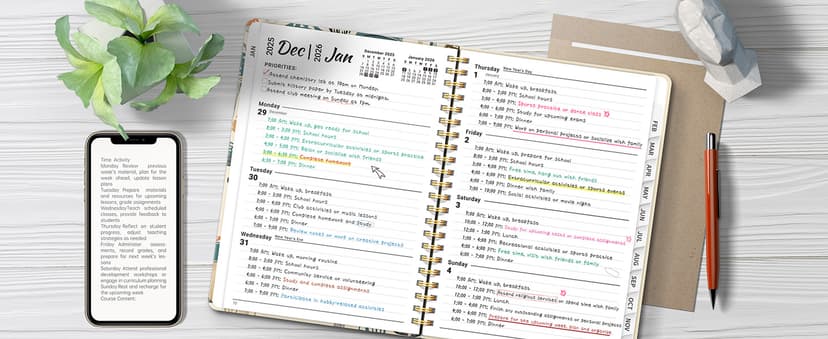 JAN
2025
Dec
2026
Jan
December 2025
January 2026
PRIORITIES:
Attend chemistry lab at 10am on Monday.
Submit history paper by Tuesday at midnight.
Attend club meeting on Sunday at 7pm.
Monday
29 December
7:00 AM: Wake up, get ready for school
8:00 - 3:00 PM: School hours
3:00 - 4:00 PM: Extracurricular activities or sports practice
4:00 - 5:00 PM: Relax or socialize with friends
5:00 - 6:00 PM: Complete homework
6:00 - 7:00 PM: Dinner
Tuesday
30
7:00 AM: Wake up, breakfast
8:00 - 3:00 PM: School hours
3:00 - 4:00 PM: Club activities or music lessons
4:00 - 6:00 PM: Complete homework and study
6:00 - 7:00 PM: Dinner
Review notes or work on creative projects
Wednesday New Year's Eve
31
7:00 AM: Wake up, morning routine
8:00 - 3:00 PM: School hours
3:00 - 4:00 PM: Community service or volunteering
4:00 - 6:00 PM: Study and complete assignments
6:00 - 7:00 PM: Dinner
Participate in hobby-related activities
Thursday New Year's Day
1
January
7:00 AM: Wake up, breakfast
8:00 - 3:00 PM: School hours
3:00 - 4:00 PM: Sports practice or dance class
4:00 - 6:00 PM: Study for upcoming exams
6:00 - 7:00 PM: Dinner
Work on personal projects or socialize with family
Friday
2
7:00 AM: Wake up, prepare for school
8:00 - 3:00 PM: School hours
Free time, hang out with friends
Extracurricular activities or sports events
Dinner with family
Social activities or movie night
Saturday
3
7:00 AM: Wake up, breakfast
Study for upcoming quiz or complete assignments
Lunch
Recreational activities or sports practice
Free time, visit with friends or family
Dinner
Sunday
4
7:00 AM: Wake up, breakfast
Attend religious services or spend time with family
Lunch
Finish any outstanding assignments or personal projects
Prepare for the upcoming week, plan and organize
Dinner
FEB
MAR
APR
MAY
JUN
JUL
AUG
SEP
OCT
NOV
Time Activity
Monday Review previous
week's material, plan for the
week ahead, update lesson
plans
Tuesday Prepare materials
and resources for upcoming
lessons, grade assignments
WednesdayTeach scheduled
classes, provide feedback to
students
Thursday Reflect on student
progress, adjust teaching
strategies as needed
Friday Administer assess-
ments, record grades, and
prepare for next week's les-
sons
Saturday Attend professional
development workshops or
engage in curriculum planning
Sunday Rest and recharge for
the upcoming week
Course Content: